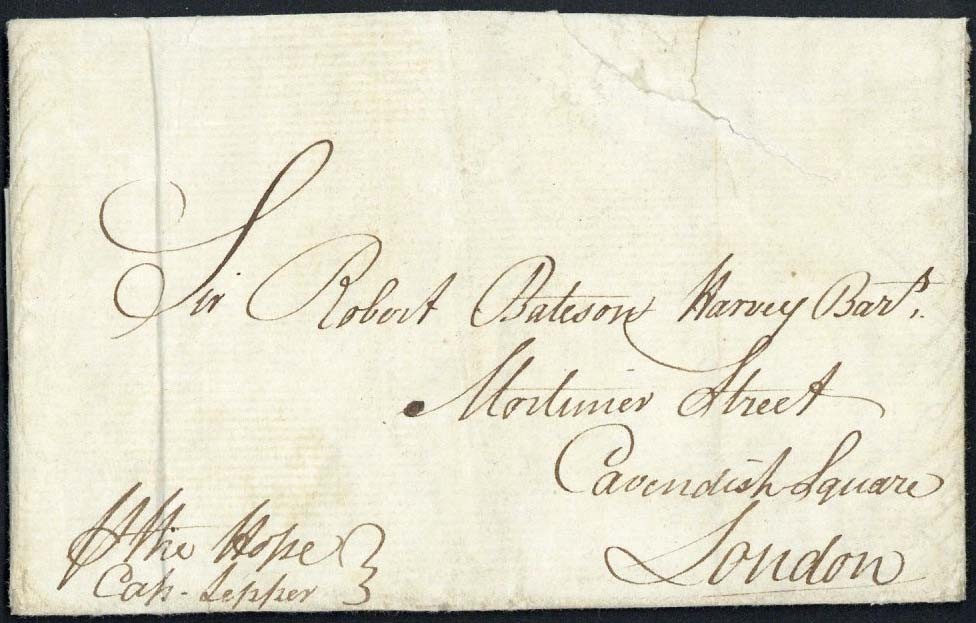 Sir Robert Bateson Harvey Bart.
Mortimer Street
Cavendish Square
London
⅌ the Hope
Cap. Lepper